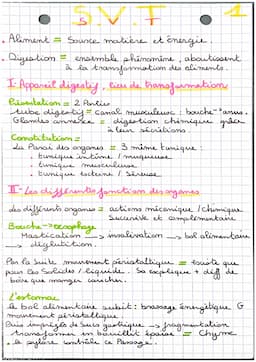 S.V.T
1
. Aliment = Source matière et énergie
. Digestion = ensemble phénomène, aboutissent
à la transformation des aliments.
I- Appareil digestif, lieu de transformation
Présentation = 2 Parties
tube digestif = canal musculeux : bouche → anus.
Glandes annexe = digestion chimique grâce
à leur sécrétions
Constitution =
La Paroi des organes = 3 même tunique :
. tunique intérne / muqueuse
. tunique musculeuse
. tunique externe / Séreuse
II- Les différentes fonction des organes
Les différents organes = actions mécanique / chimique
Sucessive et complémentaire
Bouche → œsophage
Mastication → insalivation → bol alimentaire
→ déglutition.
Par la suite mouvement péristaltique = existe que
pour les Solides / liquide. Sa explique + diff de
boire que manger coucher.
L'estomac
Le bol alimentaire subit : brassage énergétique G
mouvement péristaltique.
Puis imprégnés de Sucs gastrique → fragmentation
transformer en bouillit épaisse = Chyme
. le pylore contrôle ce Passage.